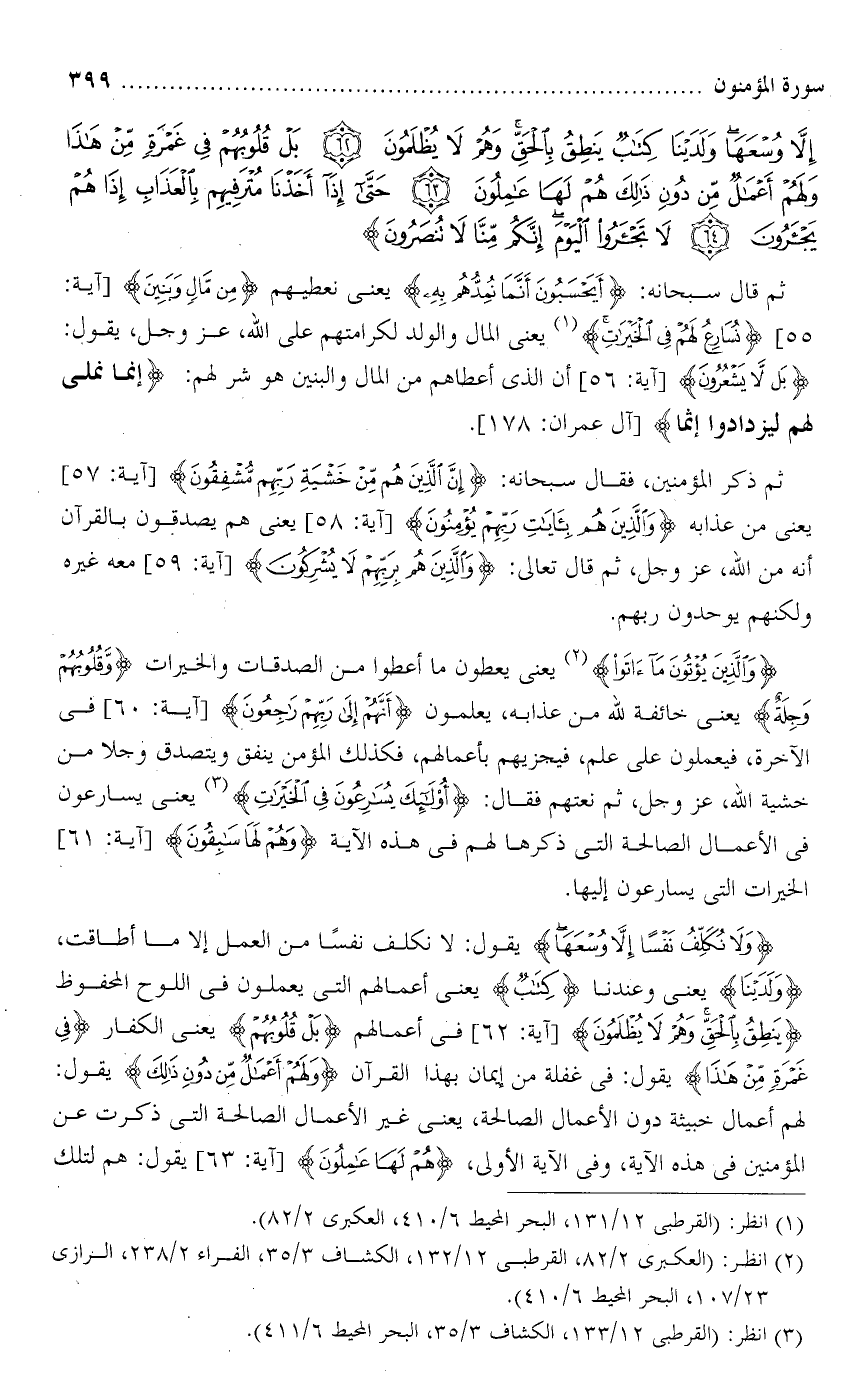 سورة المؤمنون ........................................................................ ٣٩٩
إِلَّا وُسْعَهَا ۖ وَلَدَيْنَا كِتَٰبٌ يَنطِقُ بِٱلْحَقِّ ۚ وَهُمْ لَا يُظْلَمُونَ ﴿٦٢﴾ بَلْ قُلُوبُهُمْ فِى غَمْرَةٍ مِّنْ هَٰذَا
وَلَهُمْ أَعْمَٰلٌ مِّن دُونِ ذَٰلِكَ هُمْ لَهَا عَٰمِلُونَ ﴿٦٣﴾ حَتَّىٰٓ إِذَآ أَخَذْنَا مُتْرَفِيهِم بِٱلْعَذَابِ إِذَا هُمْ
يَجْـَٔرُونَ ﴿٦٤﴾ لَا تَجْـَٔرُوا۟ ٱلْيَوْمَ ۖ إِنَّكُم مِّنَّا لَا تُنصَرُونَ ﴾
ثم قال سبحانه: ﴿أَيَحْسَبُونَ أَنَّمَا نُمِدُّهُم بِهِۦ﴾ يعنى نعطيهم ﴿مِن مَّالٍ وَبَنِينَ﴾ [آية:
٥٥] ﴿نُسَارِعُ لَهُمْ فِى ٱلْخَيْرَٰتِ ۚ﴾(١) يعنى المال والولد لكرامتهم على الله، عز وجل، يقول:
﴿بَل لَّا يَشْعُرُونَ﴾ [آية: ٥٦] أن الذى أعطاهم من المال والبنين هو شر لهم: ﴿إنما نملى
لهم ليزدادوا إثما﴾ [آل عمران: ١٧٨].
ثم ذكر المؤمنين، فقال سبحانه: ﴿إِنَّ ٱلَّذِينَ هُم مِّنْ خَشْيَةِ رَبِّهِم مُّشْفِقُونَ﴾ [آية: ٥٧]
يعنى من عذابه ﴿وَٱلَّذِينَ هُم بِـَٔايَٰتِ رَبِّهِمْ يُؤْمِنُونَ﴾ [آية: ٥٨] يعنى هم يصدقون بالقرآن
أنه من الله، عز وجل، ثم قال تعالى: ﴿وَٱلَّذِينَ هُم بِرَبِّهِمْ لَا يُشْرِكُونَ﴾ [آية: ٥٩] معه غيره
ولكنهم يوحدون ربهم.
﴿وَٱلَّذِينَ يُؤْتُونَ مَآ ءَاتَوا۟﴾(٢) يعنى يعطون ما أعطوا من الصدقات والخيرات ﴿وَّقُلُوبُهُمْ
وَجِلَةٌ﴾ يعنى خائفة لله من عذابه، يعلمون ﴿أَنَّهُمْ إِلَىٰ رَبِّهِمْ رَٰجِعُونَ﴾ [آية: ٦٠] فى
الآخرة، فيعملون على علم، فيجزيهم بأعمالهم، فكذلك المؤمن ينفق ويتصدق وجلا من
خشية الله، عز وجل، ثم نعتهم فقال: ﴿أُو۟لَٰٓئِكَ يُسَٰرِعُونَ فِى ٱلْخَيْرَٰتِ﴾(٣) يعنى يسارعون
فى الأعمال الصالحة التى ذكرها لهم فى هذه الآية ﴿وَهُمْ لَهَا سَٰبِقُونَ﴾ [آية: ٦١]
الخيرات التى يسارعون إليها.
﴿وَلَا نُكَلِّفُ نَفْسًا إِلَّا وُسْعَهَا ۖ﴾ يقول: لا نكلف نفسًا من العمل إلا ما أطاقت،
﴿وَلَدَيْنَا﴾ يعنى وعندنا ﴿كِتَٰبٌ﴾ يعنى أعمالهم التى يعملون فى اللوح المحفوظ
﴿يَنطِقُ بِٱلْحَقِّ ۚ وَهُمْ لَا يُظْلَمُونَ﴾ [آية: ٦٢] فى أعمالهم ﴿بَلْ قُلُوبُهُمْ﴾ يعنى الكفار ﴿فِى
غَمْرَةٍ مِّنْ هَٰذَا﴾ يقول: فى غفلة من إيمان بهذا القرآن ﴿وَلَهُمْ أَعْمَٰلٌ مِّن دُونِ ذَٰلِكَ﴾ يقول:
لهم أعمال خبيثة دون الأعمال الصالحة، يعنى غير الأعمال الصالحة التى ذكرت عن
المؤمنين فى هذه الآية، وفى الآية الأولى، ﴿هُمْ لَهَا عَٰمِلُونَ﴾ [آية: ٦٣] يقول: هم لتلك
(١) انظر: (القرطبى ١٣١/١٢، البحر المحيط ٤١٠/٦، العكبرى ٨٢/٢).
(٢) انظر: (العكبرى ٨٢/٢، القرطبى ١٣٢/١٢، الكشاف ٣٥/٣، الفراء ٢٣٨/٢، الرازى
١٠٧/٢٣، البحر المحيط ٤١٠/٦).
(٣) انظر: (القرطبى ١٣٣/١٢، الكشاف ٣٥/٣، البحر المحيط ٤١١/٦).